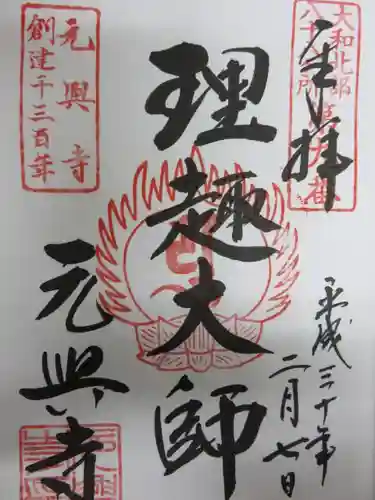 奉拝
平成三十年
二月七日
理趣大師
元興寺
元興寺
創建千三百年
大和北部
八十八所